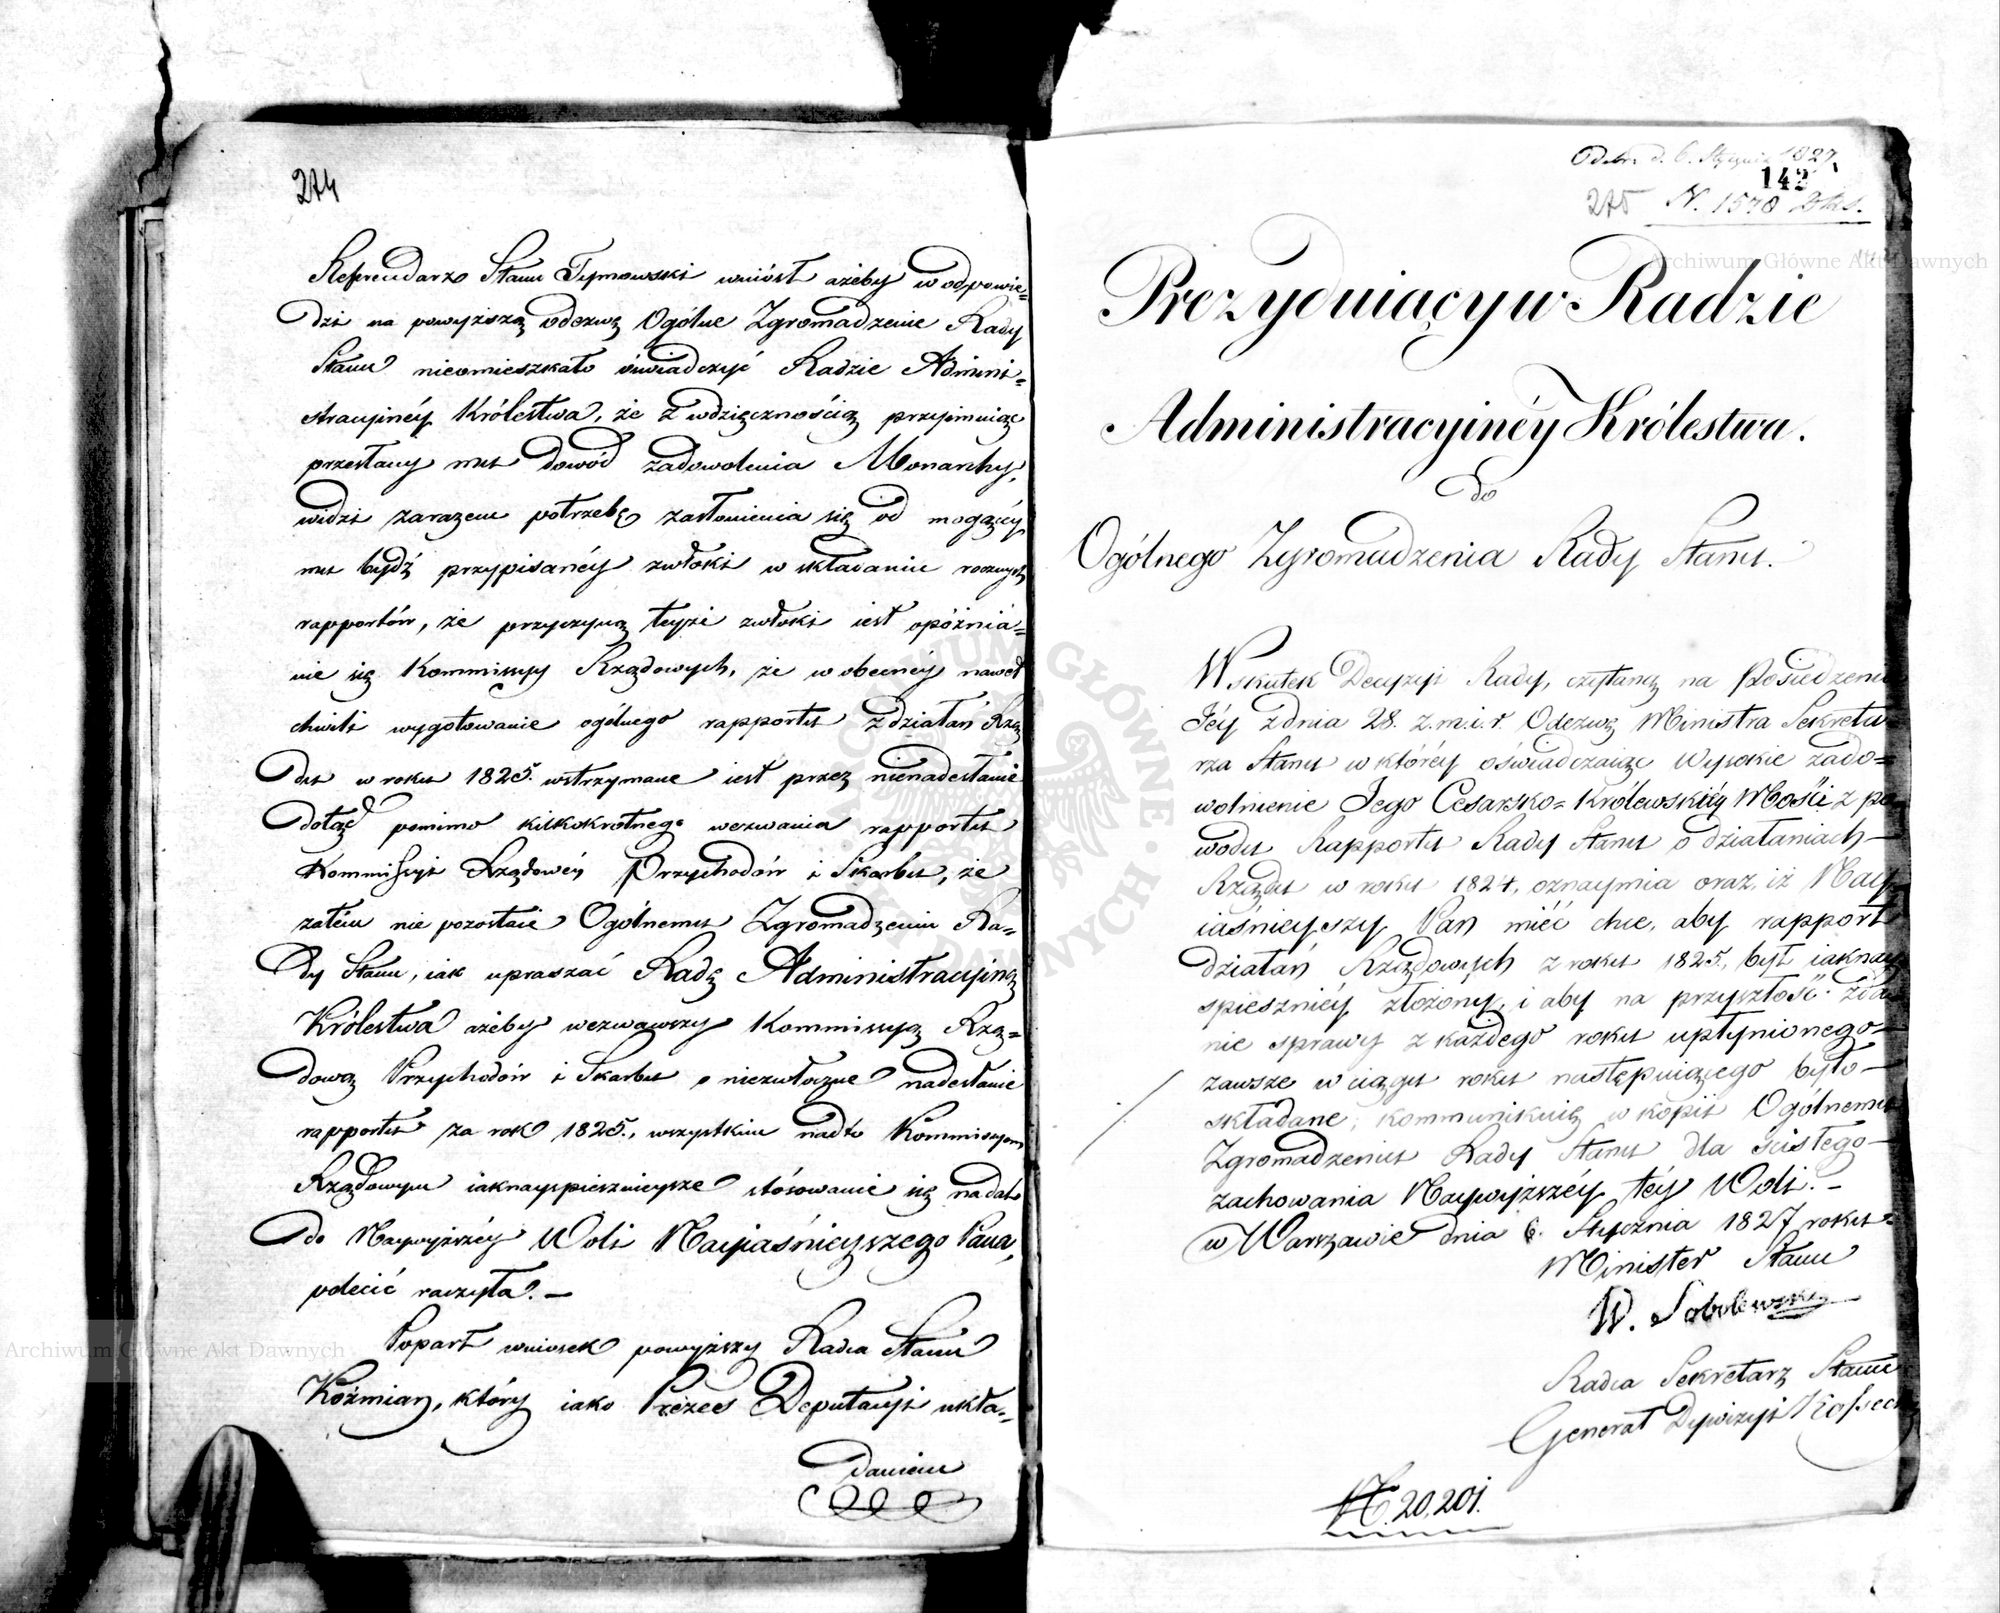 274
Referendarz Stanu Tymowski wniósł ażeby w odpowie=
dzi na powyższą odezwę Ogólne Zgromadzenie Rady
Stanu nieomieszkało oświadczyć Radzie Admini=
stracyinéy Królestwa, że z wdzięcznością przyimuiąc
przesłany mu dowód zadowolenia Monarchy,
widzi zarazem potrzebę zasłonienia się od mogącéy
mu bydź przypisanéy zwłoki w składaniu rocznych
rapportów, że przyczyną teyże zwłoki iest opóźnia=
nie się Kommissyy Rządowych, że w obecnéy nawet
chwili wygotowanie ogólnego rapportu z działań Rzą
du w roku 1825. wstrzymane iest przez nienadesłanie
dotąd pomimo kilkokrotnego wezwania rapportu
Kommissyi Rządowéy Przychodów i Skarbu, że
zatém nie pozostaie Ogólnemu Zgromadzeniu Ra=
dy Stanu, iak upraszać Radę Administracyiną
Królestwa ażeby wezwawszy Kommissyą Rzą=
dową Przychodów i Skarbu o niezwłoczne nadesłanie
rapportu za rok 1825., wszystkim nadto Kommissyom
Rządowym iaknayspiesznieysze stósowanie się nadal
do Naywyższéy Woli Nayiaśnieyszego Pana,
polecić raczyła. —
Poparł wniosek powyższy Radca Stanu
Koźmian, który iako Prezes Deputacyi ukła=
daniem
Odebr. d. 6. Stycznia 1827.
142
275 N. 1578
Prezyduiący w Radzie
Administracyinéy Królestwa.
do
Ogólnego Zgromadzenia Rady Stanu.
W skutek Decyzyi Rady, czytaną na Posiedzeniu
Jéy z dnia 28. z.m.i.r. Odezwę Ministra Sekreta
rza Stanu w któréy oświadczaiąc Wysokie zado=
wolnienie Jego Cesarsko=Królewskiéy Mości z po
wodu Rapportu Rady Stanu o działaniach
Rządu w roku 1824, oznaymia oraz, iż Nay
iaśnieyszy Pan mieć chce, aby rapport
działań Rządowych z roku 1825., był iaknay
spiesznéy złożony, i aby na przyszłość zda
nie sprawy z każdego roku upłynionego
zawsze w ciągu roku następuiącego było
składane, kommunikuię w kopii Ogólnemu
Zgromadzeniu Rady Stanu dla ścisłego
zachowania Naywyższéy téy Woli. —
w Warszawie dnia 6. Stycznia 1827 roku
Minister Stanu
W. Sobolewski
Radca Sekretarz Stanu
Generał Dywizyi Kossecki
N. 20,201.
Archiwum Główne Akt Dawnych
Archiwum Główne Akt Dawnych
ARCHIWUM GŁÓWNE AKT DAWNYCH